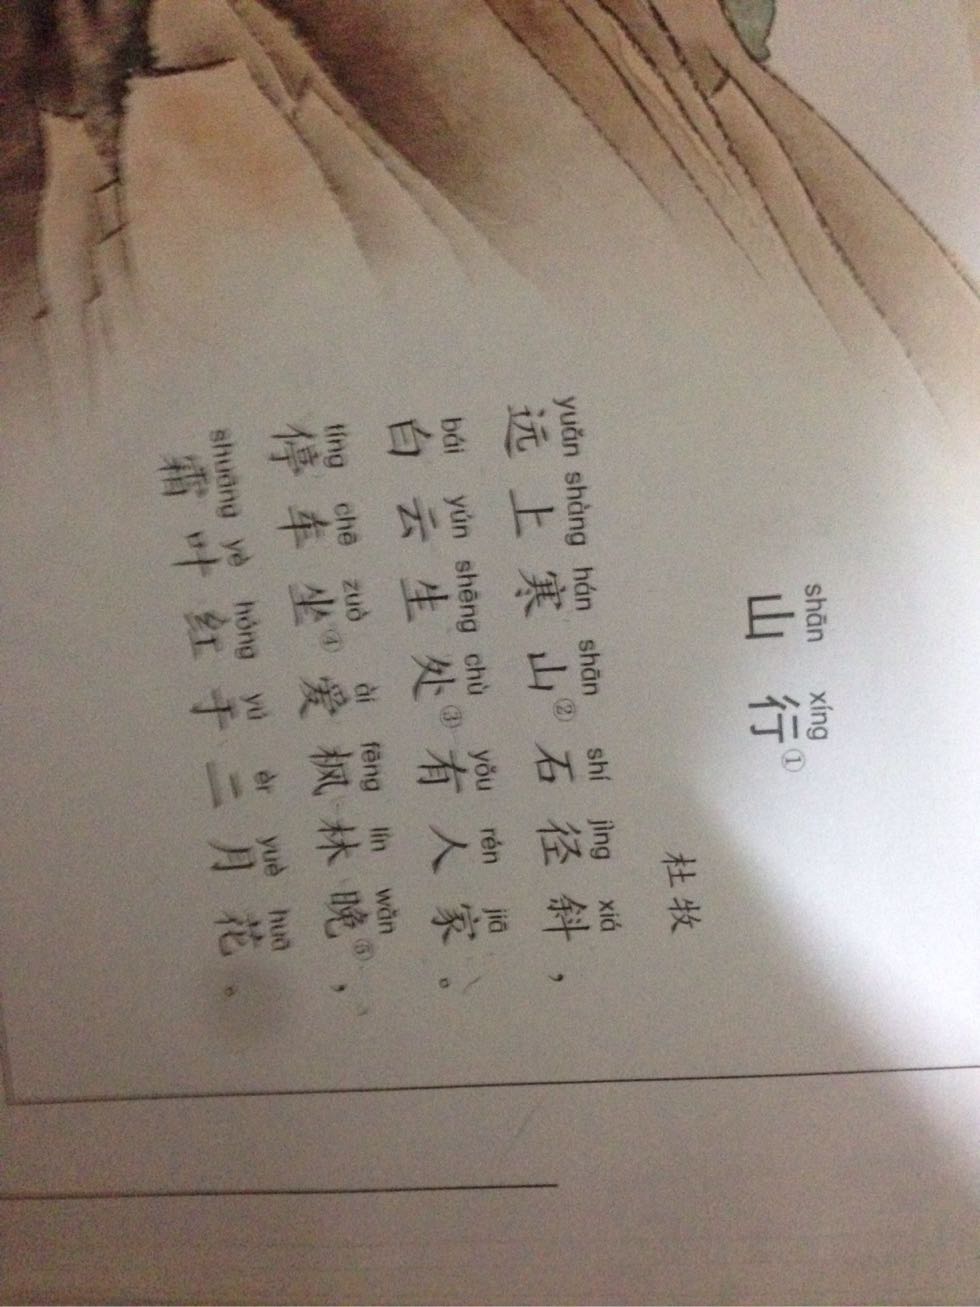 shān xíng
山行①
杜牧
yuǎn shàng hán shān shí jìng xiá
远上寒山②石径斜，
bái yún shēng chù yǒu rén jiā
白云生处③有人家。
tíng chē zuò ài fēng lín wǎn
停车坐④爱枫林晚⑤，
shuāng yè hóng yú èr yuè huā
霜叶红于二月花。